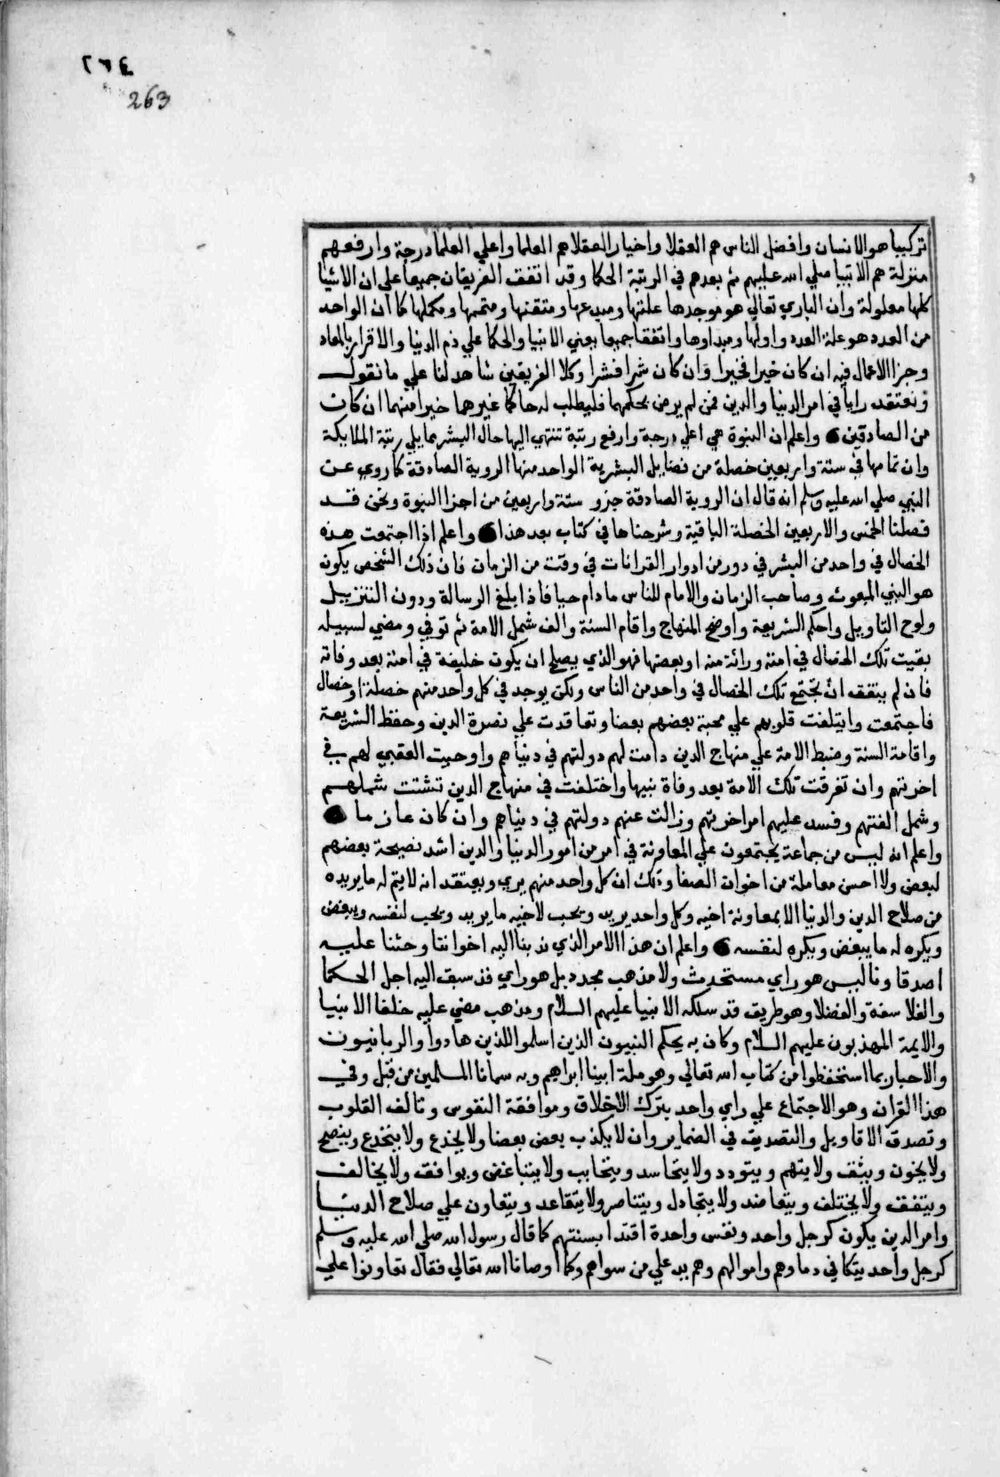 ٢٦٤
263
تركيبا هو الانسان وافضل الناس هم العقلا واخيار العقلا هم العلما واعلي العلما درجة وارفعهم
منزلة هم الانبيا صلي الله عليهم ثم بعدهم في الرتبة الحكما وقد اتفق الفريقان جميعا علي ان الاشيا
كلها معلولة وان الباري تعالي هو موجدها علتها ومبدعها ومتقنها ومتممها ومكملها كما ان الواحد
من العدد هو علة العدد واولها ومبداوها واتفقا جميعا يعني الانبيا والحكما علي ذم الدنيا والاقرار بالمعاد
وجزا الاعمال فيه ان كان خيرا فخيرا وان كان شرا فشرا وكلا الفريقين شاهد لنا علي ما نقول
ونعتقد رايا في امر الدنيا والدين فمن لم يرض بحكمهما فليطلب له حاكما غيرهما خيرا منهما ان كان
من الصادقين واعلم ان النبوة هي اعلي درجة وارفع رتبة تنتهي اليها حال البشر مما يلي رتبة الملايكة
وان تمامها في ستة واربعين خصلة من فضايل البشرية الواحد منها الروية الصادقة كما روي عن
النبي صلي الله عليه وسلم انه قال ان الروية الصادقة جزو ستة واربعين من اجزا النبوة ونحن قد
فصلنا الخمس والاربعين الخصلة الباقية وشرحناها في كتاب بعد هذا واعلم اذا اجتمعت هذه
الخصال في واحد من البشر في دور من ادوار القرانات في وقت من الزمان فان ذلك الشخص يكون
هو النبي المبعوث وصاحب الزمان والامام للناس ما دام حيا فاذا بلغ الرسالة ودون التنزيل
ولوح التاويل واحكم الشريعة واوضح المنهاج واقام السنة والف شمل الامة ثم توفي ومضي لسبيله
بقيت تلك الخصال في امته وراثة منه او بعضها فهو الذي يصلح ان يكون خليفة في امته بعد وفاته
فان لم يتفق ان تجتمع تلك الخصال في واحد من الناس ولكن يوجد في كل واحد منهم خصلة او خصال
فاجتمعت وايتلفت قلوبهم علي محبة بعضهم بعضا وتعاقدت علي نصرة الدين وحفظ الشريعة
واقامة السنة وضبط الامة علي منهاج الدين دامت لهم دولتهم في دنياهم واوحيت العقبي لهم في
اخرتهم وان تفرقت تلك الامة بعد وفاة نبيها واختلفت في منهاج الدين تشتت شملهم
وشمل الفتهم وفسد عليهم امر اخرتهم وزالت عنهم دولتهم في دنياهم وان كان عازما
واعلم انه ليس من جماعة يجتمعون علي المعاونة في امر من امور الدنيا والدين اشد نصيحة بعضهم
لبعض ولا احسن معاملة من اخوان الصفا وذلك ان كل واحد منهم يري ويعتقد انه لا يتم له ما يريده
من صلاح الدين والدنيا الا بمعاونة اخيه وكل واحد يريد ويحب لاخيه ما يريد ويحب لنفسه ويبغض
ويكره له ما يبغض ويكره لنفسه واعلم ان هذا الامر الذي ندبنا اليه اخواننا وحثنا عليه
اصدقاونا ليس هو راي مستحدث ولا مذهب مجدد بل هو راي قد سبق اليه اجل الحكما
والفلاسفة والفضلا وهو طريق قد سلكه الانبيا عليهم السلام ومذهب مضي عليه خلفا الانبيا
والايمة المهذبون عليهم السلام وكان به يحكم النبيون الذين اسلموا للذين هادوا والربانيون
والاحبار بما استحفظوا من كتاب الله تعالي وهو ملة ابينا ابراهيم وبه سمانا المسلمين من قبل وفي
هذا القران وهو الاجتماع علي راي واحد بترك الاخلاق وموافقة النفوس وتالف القلوب
وتصدق الاقاويل والتصديق في الضماير وان لا يكذب بعض بعضا ولا يخدع ولا ينخدع وينصح
ولا يخون ويثق ولا يتهم ويتودد ولا يتحاسد ويتحابب ولا يتباغض ويوافق ولا يخالف
ويتفق ولا يختلف ويتعاضد ولا يتجادل ويتناصر ولا يتقاعد ويتعاون علي صلاح الدنيا
وامر الدين يكون كرجل واحد ونفس واحدة اقتدا بسنتهم كما قال رسول الله صلي الله عليه وسلم
كرجل واحد يتكافي دماوهم واموالهم وهم يد علي من سواهم وكما اوصانا الله تعالي فقال تعاونوا علي